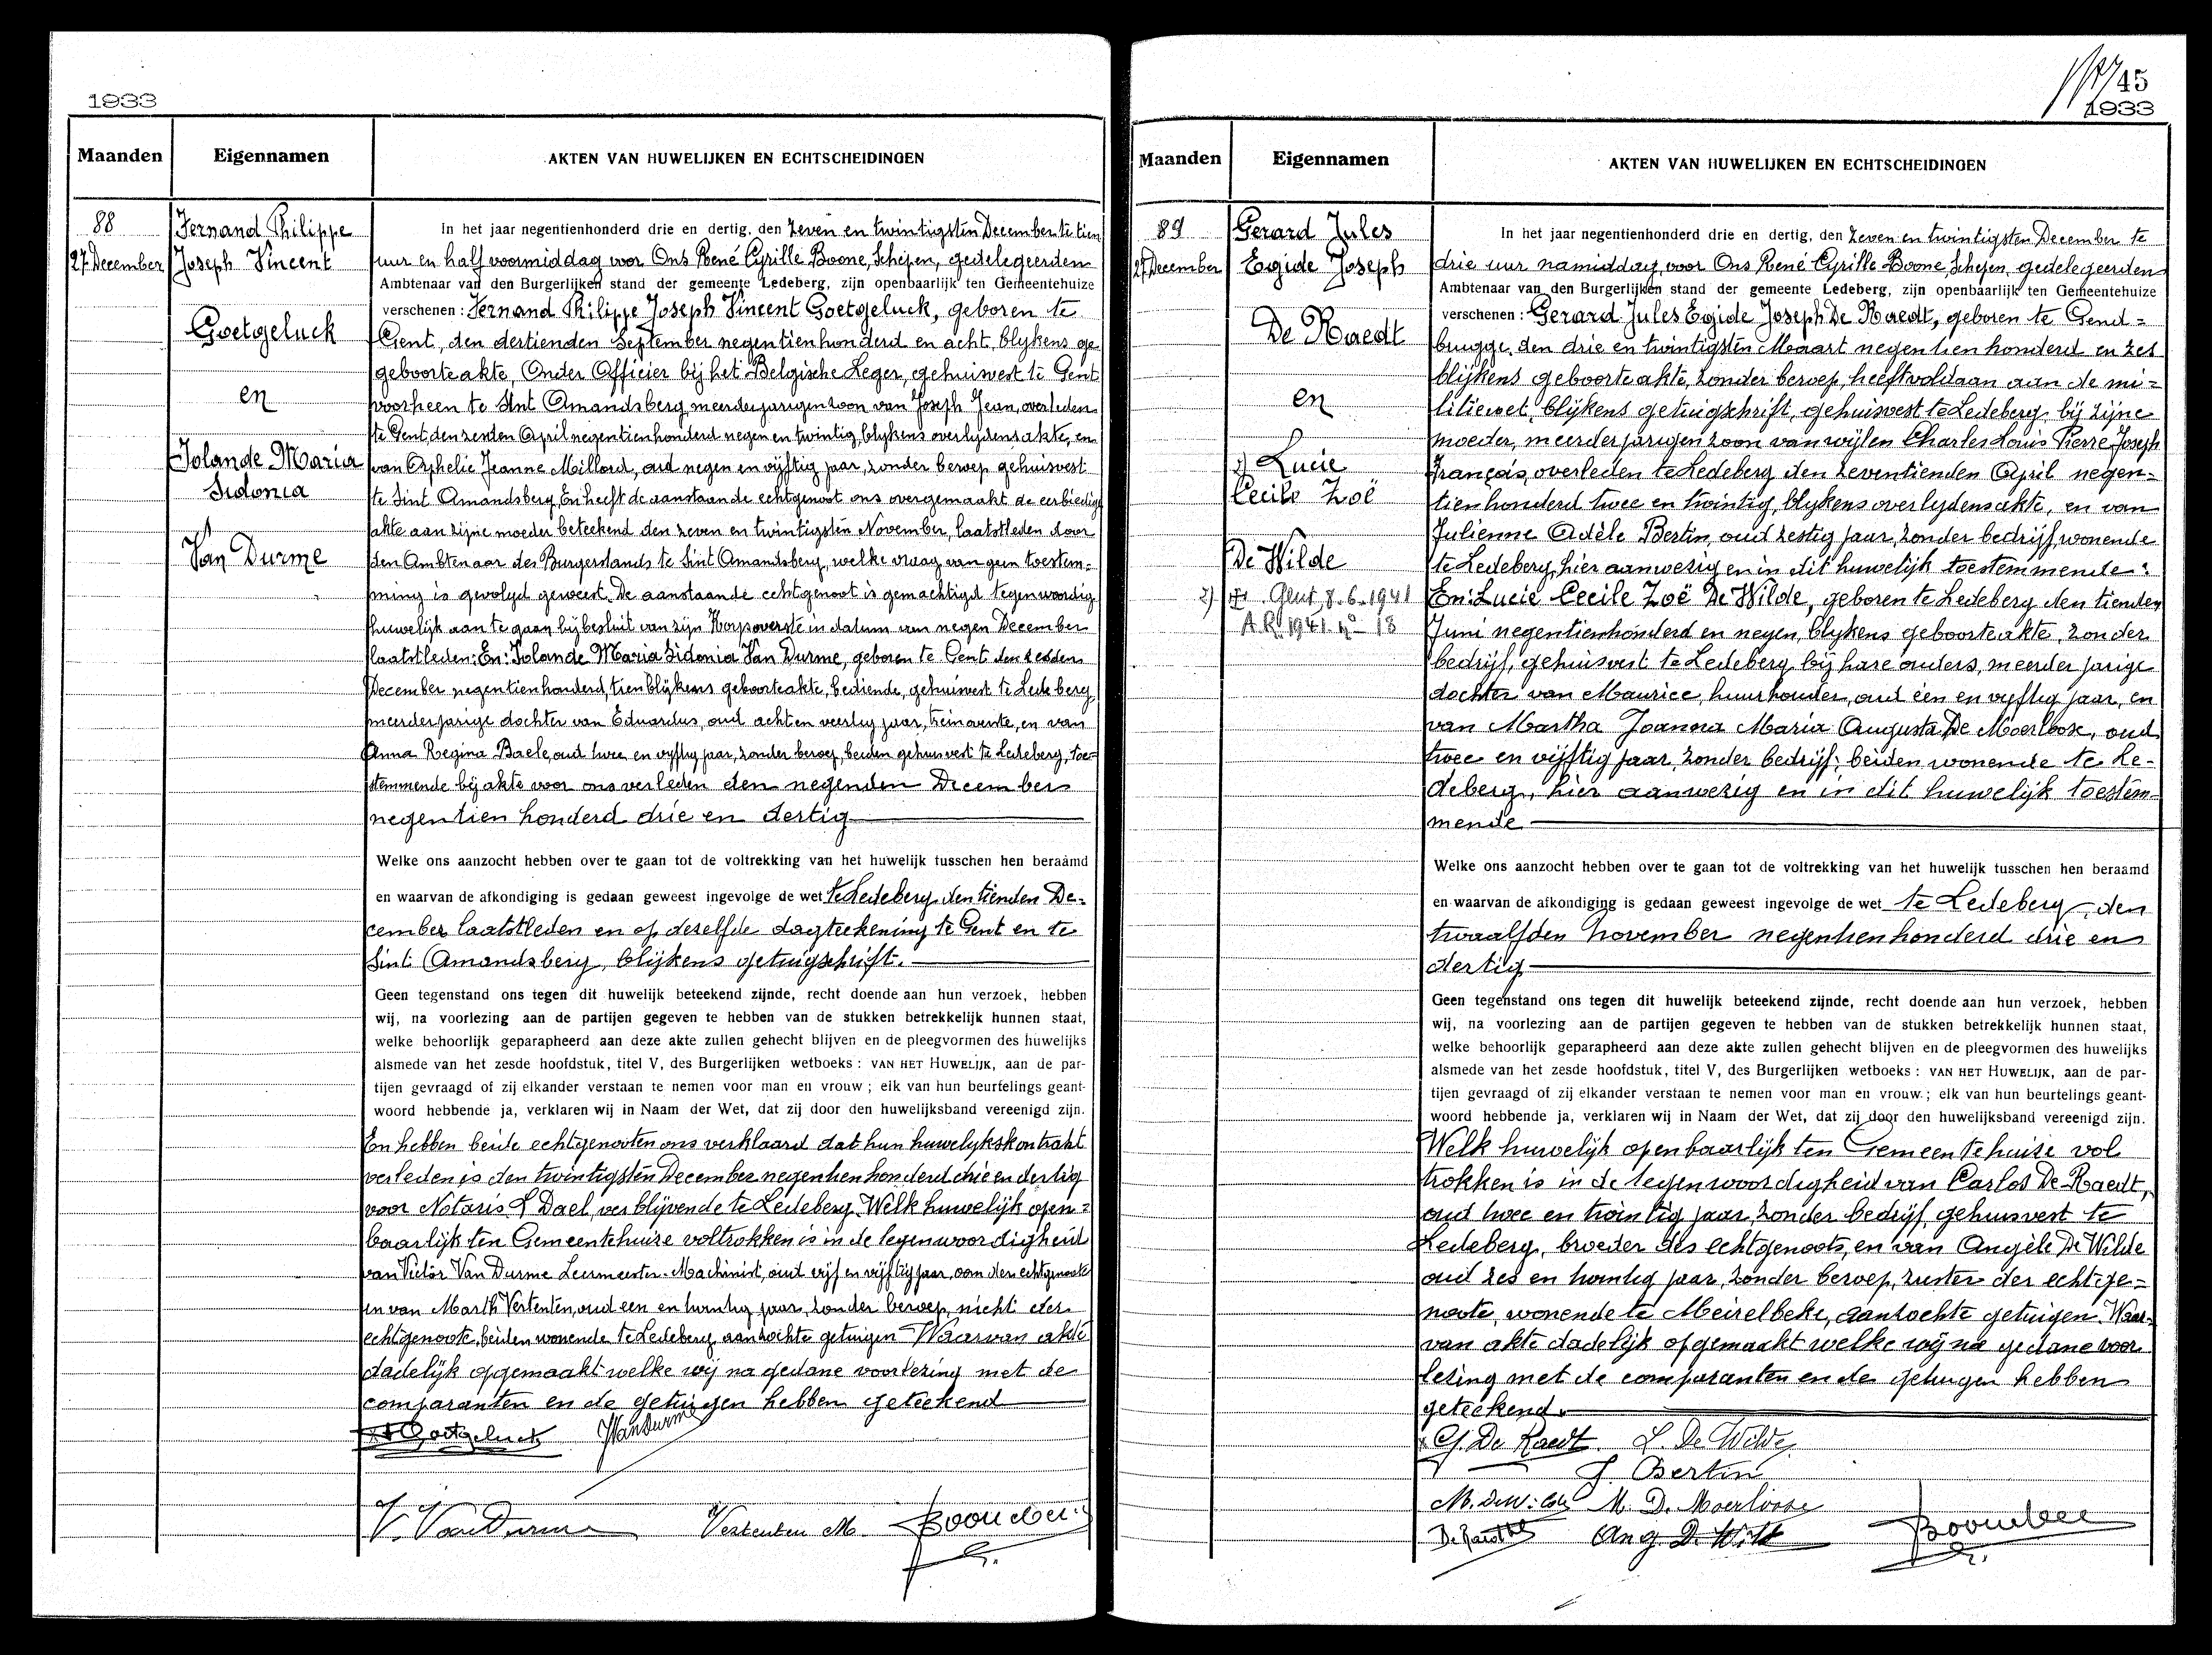 1933
Maanden Eigennamen AKTEN VAN HUWELIJKEN EN ECHTSCHEIDINGEN
88
27 December
Fernand Philippe
Joseph Vincent
Goetgeluck
en
Jolande Maria
Sidonia
Van Durme
In het jaar negentienhonderd drie en dertig, den zeven en twintigsten December te tien
uur en half voormiddag voor Ons René Cyrille Boone, Schepen, gedelegeerden
Ambtenaar van den Burgerlijken stand der gemeente Ledeberg, zijn openbaarlijk ten Gemeentehuize
verschenen : Fernand Philippe Joseph Vincent Goetgeluck, geboren te
Gent, den dertienden September negentien honderd en acht, blykens ge
geboorteakte, Onder Officier bij het Belgische Leger, gehuisvest te Gent
voorheen te Sint Amandsberg meerderjarigen zoon van Joseph Jean, overleden
te Gent, den zesden April negentien honderd negen en twintig, blykens overlijdensakte, en
van Orphelie Jeanne Millord, oud negen en vijftig jaar, zonder beroep gehuisvest
te Sint Amandsberg, En heeft de aanstaande echtgenoot ons overgemaakt de eerbiedige
akte aan zijne moeder beteekend den zeven en twintigsten November, laatstleden door
den Ambtenaar des Burgerstands te Sint Amandsberg, welke vraag van geen toestem=
ming is gevolgd geweest. De aanstaande echtgenoot is gemachtigd tegenwoordig
huwelijk aan te gaan bij besluit van zijn Korpsoverste in datum van negen December
laatstleden: En: Jolande Maria Sidonia Van Durme, geboren te Gent den zesden
December negentien honderd, tien blijkens geboorteakte, bediende, gehuisvest te Ledeberg,
meerderjarige dochter van Eduardus, oud acht en veertig jaar, treinwachter, en van
Anna Regina Baele, oud twee en vijftig jaar, zonder beroep, beiden gehuisvest te Ledeberg, toe=
stemmende bij akte voor ons verleden den negenden December
negentien honderd drie en dertig
Welke ons aanzocht hebben over te gaan tot de voltrekking van het huwelijk tusschen hen beraamd
en waarvan de afkondiging is gedaan geweest ingevolge de wet te Ledeberg, den tienden De=
cember laatstleden en op deselfde dagteekening te Gent en te
Sint Amandsberg, blijkens getuigschrift.
Geen tegenstand ons tegen dit huwelijk beteekend zijnde, recht doende aan hun verzoek, hebben
wij, na voorlezing aan de partijen gegeven te hebben van de stukken betrekkelijk hunnen staat,
welke behoorlijk geparapheerd aan deze akte zullen gehecht blijven en de pleegvormen des huwelijks
alsmede van het zesde hoofdstuk, titel V, des Burgerlijken wetboeks : VAN HET HUWELIJK, aan de par-
tijen gevraagd of zij elkander verstaan te nemen voor man en vrouw ; elk van hun beurtelings geant-
woord hebbende ja, verklaren wij in Naam der Wet, dat zij door den huwelijksband vereenigd zijn.
En hebben beide echtgenooten ons verklaard dat hun huwelykskontrakt
verleden is den twintigsten December negentien honderd drie en dertig
voor Notaris L Dael, verblijvende te Ledeberg. Welk huwelijk open=
baarlijk ten Gemeentehuize voltrokken is in de tegenwoordigheid
van Victor Van Durme Leermeester-Machinist, oud vijf en vijftig jaar, oom der echtgenoote
en van Marth Vertenten, oud een en twintig jaar, zonder beroep, nicht der
echtgenoote, beiden wonende te Ledeberg, aanzochte getuigen Waarvan akte
dadelijk opgemaakt welke wij na gedane voorlezing met de
comparanten en de getuigen hebben geteekend
Goetgeluck JVanDurme
V. VanDurme Vertenten M.
45
1933
Maanden Eigennamen AKTEN VAN HUWELIJKEN EN ECHTSCHEIDINGEN
89
27 December
Gerard Jules
Egide Joseph
De Raedt
en
Lucie
Cecile Zoë
De Wilde
2) Gent, 8.6.1941
A.R. 1941. n° 18
In het jaar negentienhonderd drie en dertig, den zeven en twintigsten December te
drie uur namiddag, voor Ons René Cyrille Boone Schepen, gedelegeerden
Ambtenaar van den Burgerlijken stand der gemeente Ledeberg, zijn openbaarlijk ten Gemeentehuize
verschenen : Gerard Jules Egide Joseph De Raedt, geboren te Gend=
brugge, den drie en twintigsten Maart negentien honderd en zes
blijkens geboorteakte, zonder beroep, heeft voldaan aan de mi=
litiewet, blijkens getuigschrift, gehuisvest te Ledeberg, bij zijne
moeder, meerderjarigen zoon van wijlen Charles Louis Pierre Joseph
François, overleden te Ledeberg den zeventienden April negen=
tien honderd twee en twintig, blykens overlydensakte, en van
Julienne Adèle Bertin, oud zestig jaar, zonder bedrijf, wonende
te Ledeberg, hier aanwezig en in dit huwelijk toestemmende:
En: Lucie Cecile Zoë De Wilde, geboren te Ledeberg den tienden
Juni negentienhonderd en negen, blykens geboorteakte, zonder
bedrijf, gehuisvest te Ledeberg, bij hare ouders, meerderjarige
dochter van Maurice, huurhouder, oud één en vyftig jaar, en
van Martha Joanna Maria Augusta De Moerloose, oud
twee en vijftig jaar, zonder bedrijf; beiden wonende te Le-
deberg, hier aanwezig en in dit huwelijk toestem-
mende
Welke ons aanzocht hebben over te gaan tot de voltrekking van het huwelijk tusschen hen beraamd
en waarvan de afkondiging is gedaan geweest ingevolge de wet te Ledeberg, den
twaalfden November negentien honderd drie en
dertig
Geen tegenstand ons tegen dit huwelijk beteekend zijnde, recht doende aan hun verzoek, hebben
wij, na voorlezing aan de partijen gegeven te hebben van de stukken betrekkelijk hunnen staat,
welke behoorlijk geparapheerd aan deze akte zullen gehecht blijven en de pleegvormen des huwelijks
alsmede van het zesde hoofdstuk, titel V, des Burgerlijken wetboeks : VAN HET HUWELIJK, aan de par-
tijen gevraagd of zij elkander verstaan te nemen voor man en vrouw ; elk van hun beurtelings geant-
woord hebbende ja, verklaren wij in Naam der Wet, dat zij door den huwelijksband vereenigd zijn.
Welk huwelijk openbaarlijk ten Gemeentehuize vol
trokken is in de tegenwoordigheid van Carlos De Raedt,
oud twee en twintig jaar, zonder bedrijf, gehuisvest te
Ledeberg, broeder des echtgenoots, en van Angèle De Wilde
oud zes en twintig jaar, zonder beroep, zuster der echtge=
noote, wonende te Meirelbeke, aanzochte getuigen. Waar=
van akte dadelijk opgemaakt welke wij na gedane voor
lezing met de comparanten en de getuigen hebben
geteekend.
G. De Raedt. L. De Wilde
J. Bertin
M. DeWilde M. De Moerloose
Ang. De Wilde